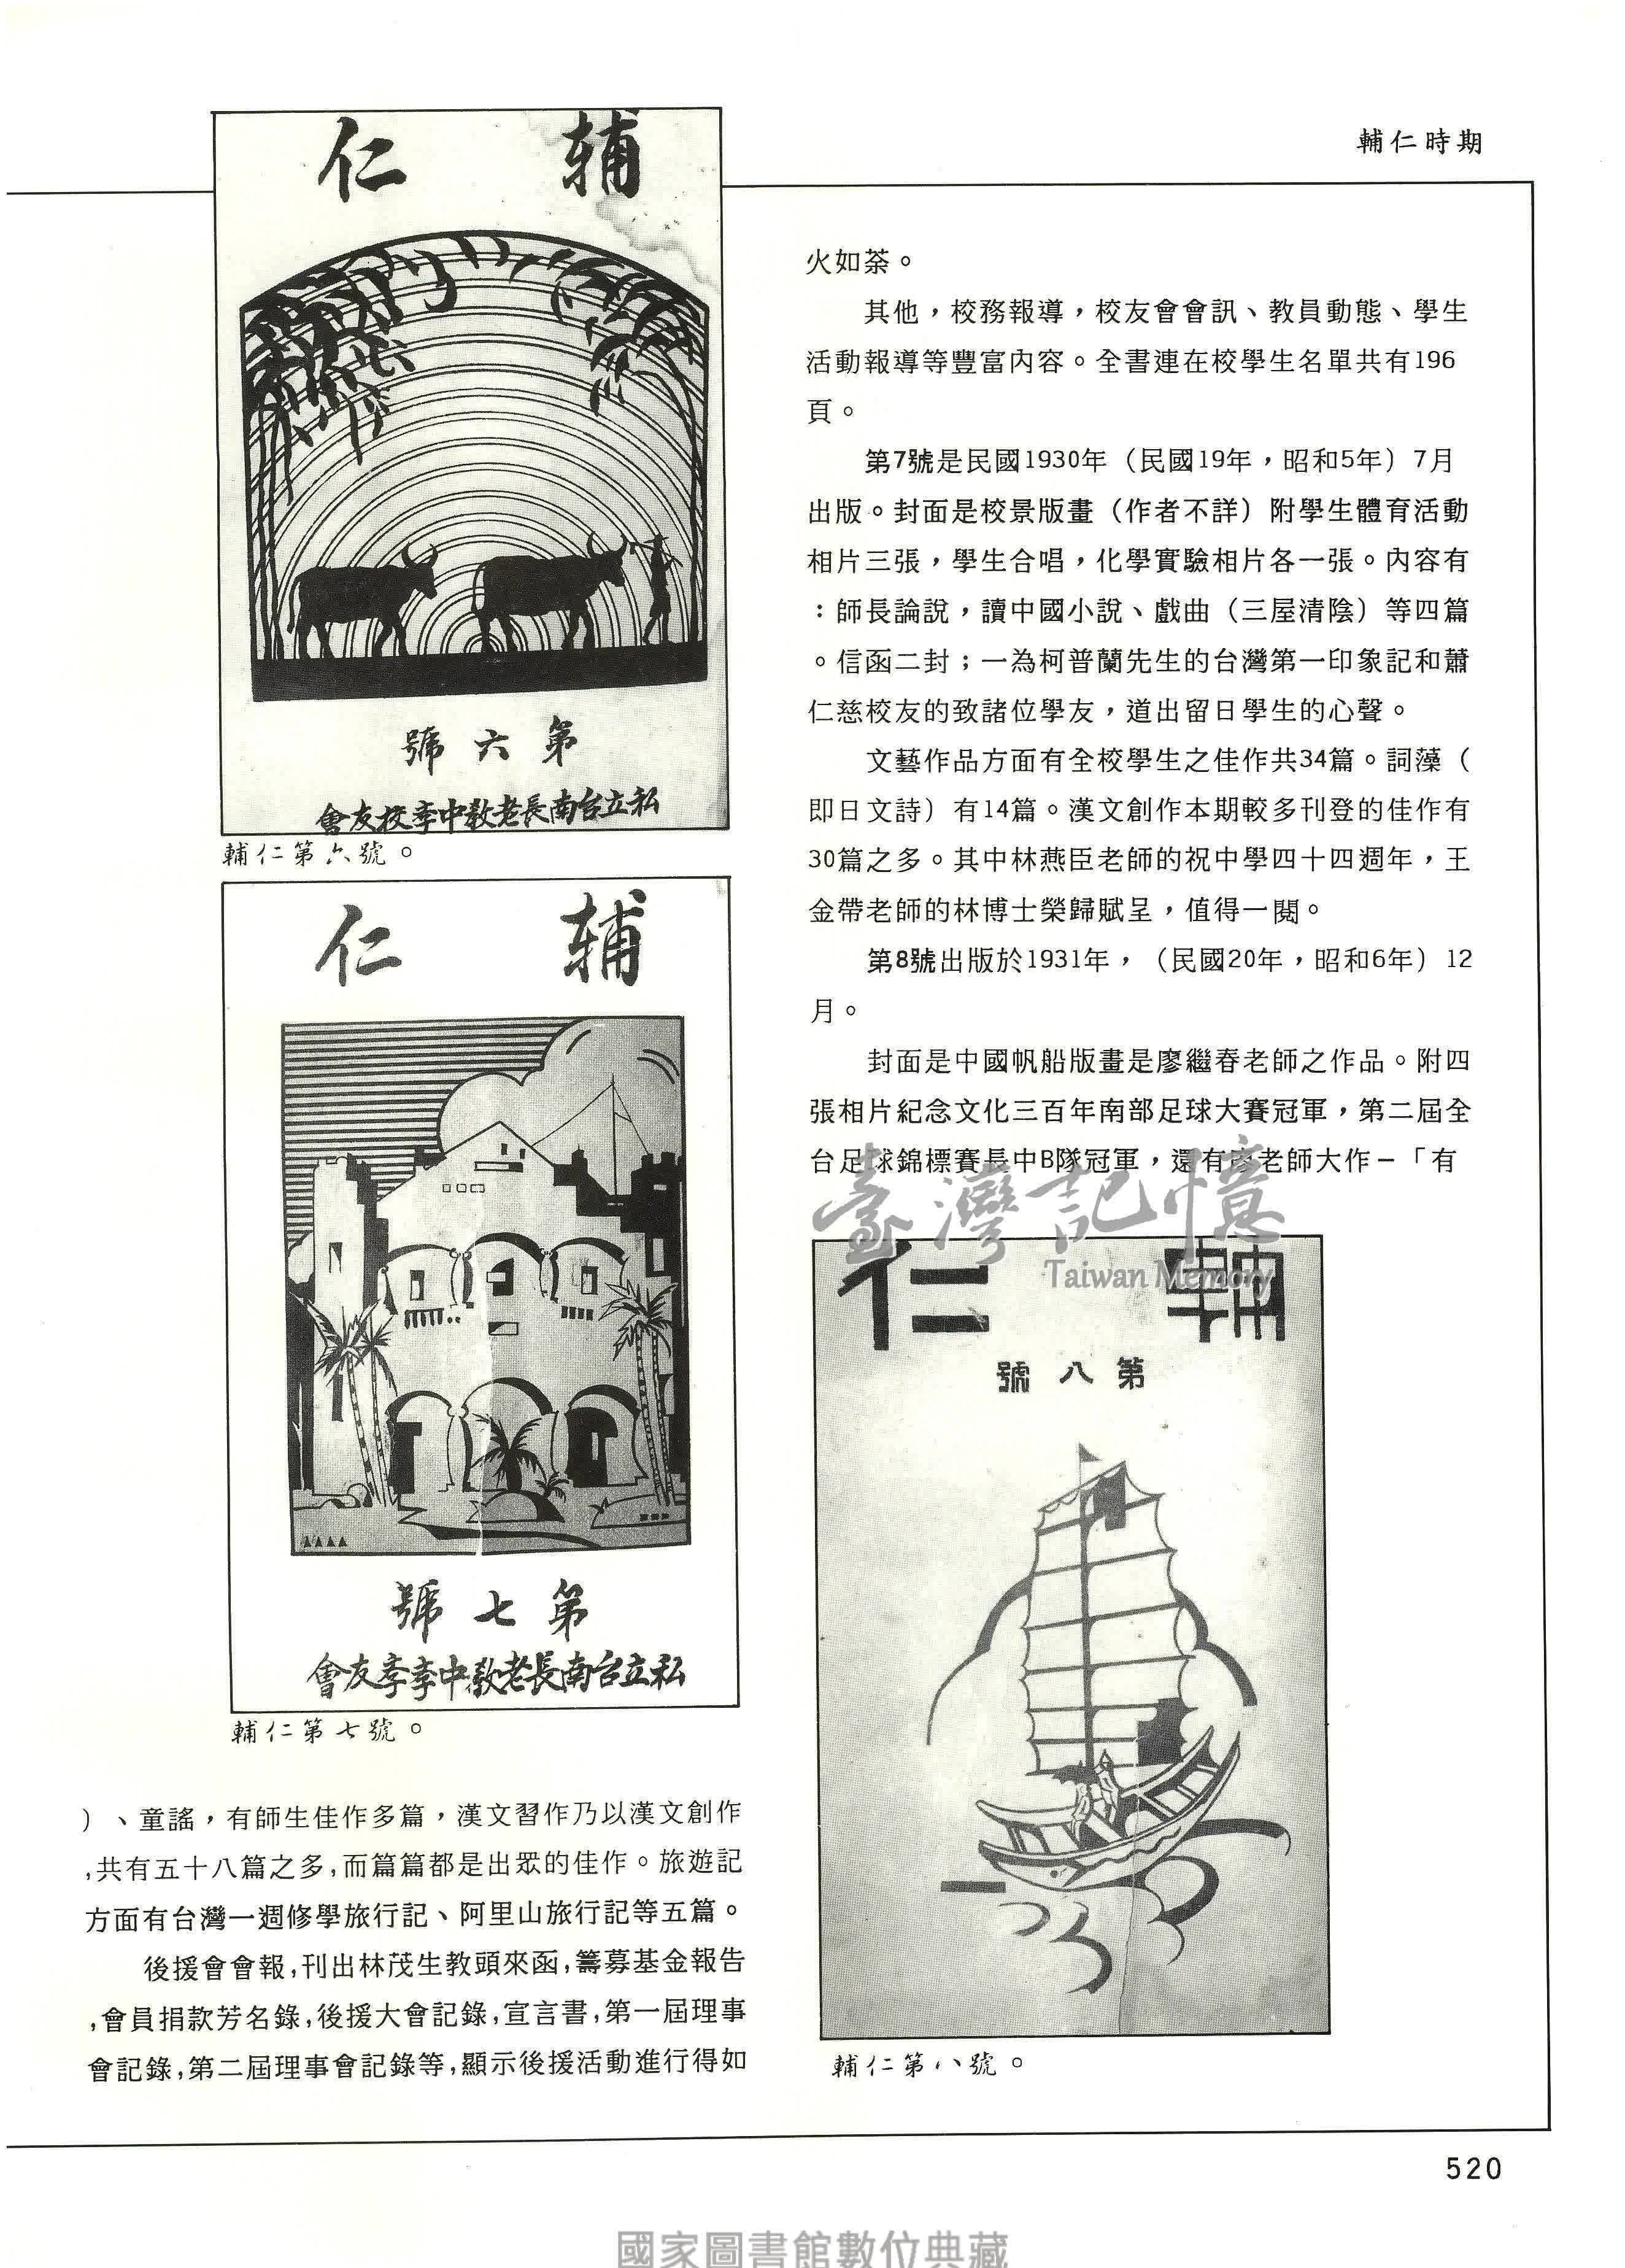 輔仁時期
仁 輔
號六第
會友校李中教老長南台立私
輔仁第六號。
仁 輔
號七第
會友李李中教老長南台立私
輔仁第七號。
）、童謠，有師生佳作多篇，漢文習作乃以漢文創作
,共有五十八篇之多,而篇篇都是出眾的佳作。旅遊記
方面有台灣一週修學旅行記、阿里山旅行記等五篇。
後援會會報,刊出林茂生教頭來函,籌募基金報告
,會員捐款芳名錄,後援大會記錄,宣言書,第一屆理事
會記錄,第二屆理事會記錄等,顯示後援活動進行得如
火如荼。
其他，校務報導，校友會會訊、教員動態、學生
活動報導等豐富內容。全書連在校學生名單共有196
頁。
第7號是民國1930年（民國19年，昭和5年）7月
出版。封面是校景版畫（作者不詳）附學生體育活動
相片三張，學生合唱，化學實驗相片各一張。內容有
：師長論說，讀中國小說、戲曲（三屋清陰）等四篇
。信函二封；一為柯普蘭先生的台灣第一印象記和蕭
仁慈校友的致諸位學友，道出留日學生的心聲。
文藝作品方面有全校學生之佳作共34篇。詞藻（
即日文詩）有14篇。漢文創作本期較多刊登的佳作有
30篇之多。其中林燕臣老師的祝中學四十四週年，王
金帶老師的林博士榮歸賦呈，值得一閱。
第8號出版於1931年，（民國20年，昭和6年）12
月。
封面是中國帆船版畫是廖繼春老師之作品。附四
張相片紀念文化三百年南部足球大賽冠軍，第二屆全
台足球錦標賽長中B隊冠軍，還有廖老師大作－「有
臺灣記憶
Taiwan Memory
仁 輔
號八第
輔仁第八號。
520
國家圖書館數位典藏